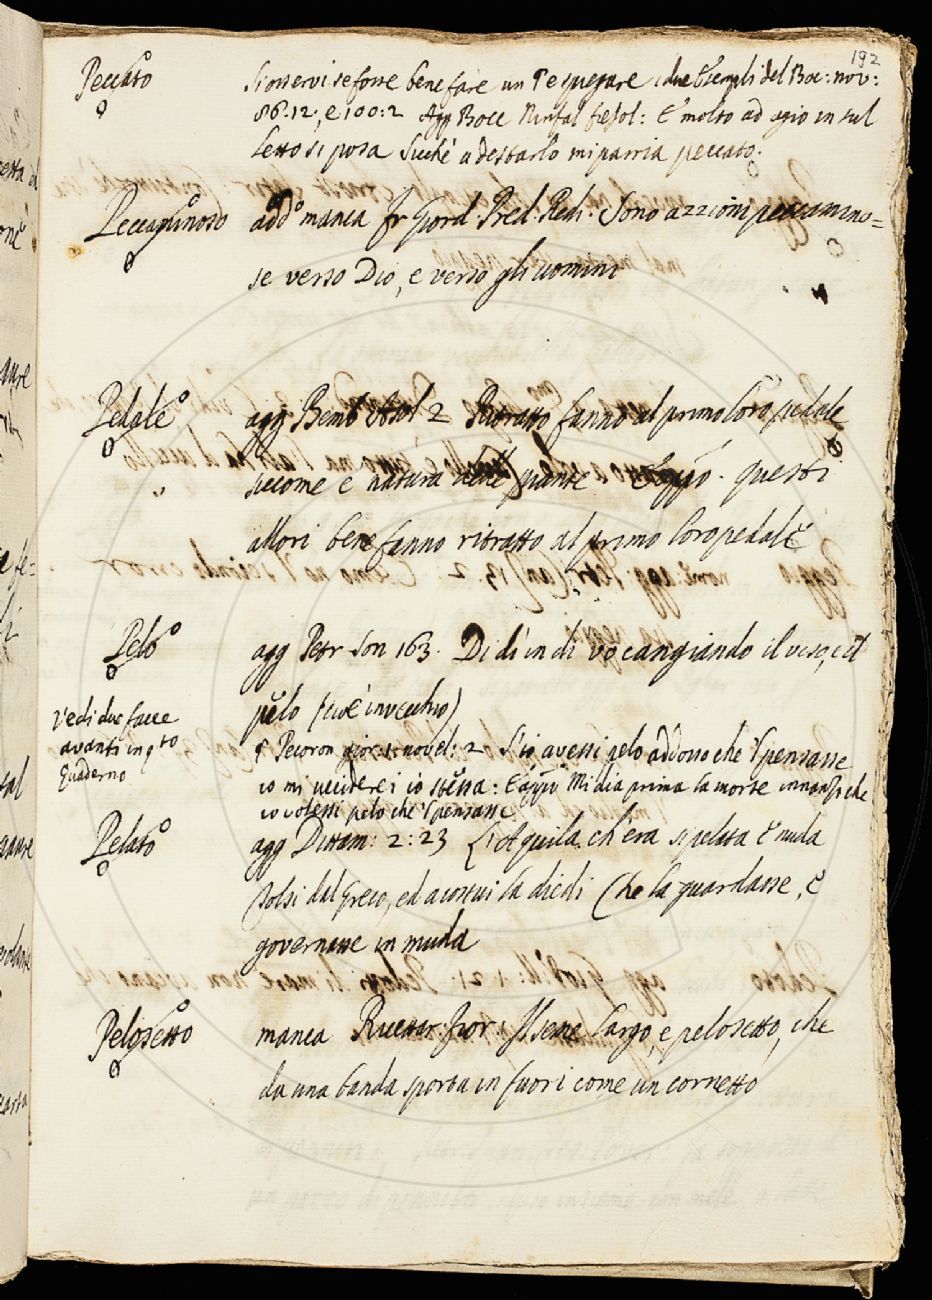 192
Peccato Si osservi se fosse bene fare un § e spiegare i due Esempli del Boc: nov:
86:12, e 100:2 Agg Bocc Ninfal fiesol: E' molto ad agio in sul
letto si posa Sicché a destarlo mi parria peccato.
Peccaminoso add manca fr Giord Pred. Redi. Sono azzioni peccamino=
se verso Dio, e verso gli uomini
Pedale agg Bemb Asol 2 Ritratto fanno al primo loro pedale
siccome è natura delle piante questi
allori bene fanno ritratto al primo loro pedale
Pelo agg Petr Son 163. Di dì in dì vo cangiando il viso, e il
pelo (cioè invecchio)
Vedi due facce
avanti in qto
Quaderno
§ Pecoron gior: novel: 2 S'io avessi pelo addosso che 'l pensasse
io mi ucciderei io stessa: E Mi dia prima la morte innanzi che
io volessi pelo che 'l pensasse
Pelato agg Dittam: 2:23 L'Aquila, ch'era si pelata e nuda
Tolsi dal Greco, ed a costui la diedi Che la guardasse, e
governasse in muda
Pelosetto manca Ricettar: fior: Issene largo, e pelosetto, che
da una banda sporta in fuori come un cornetto